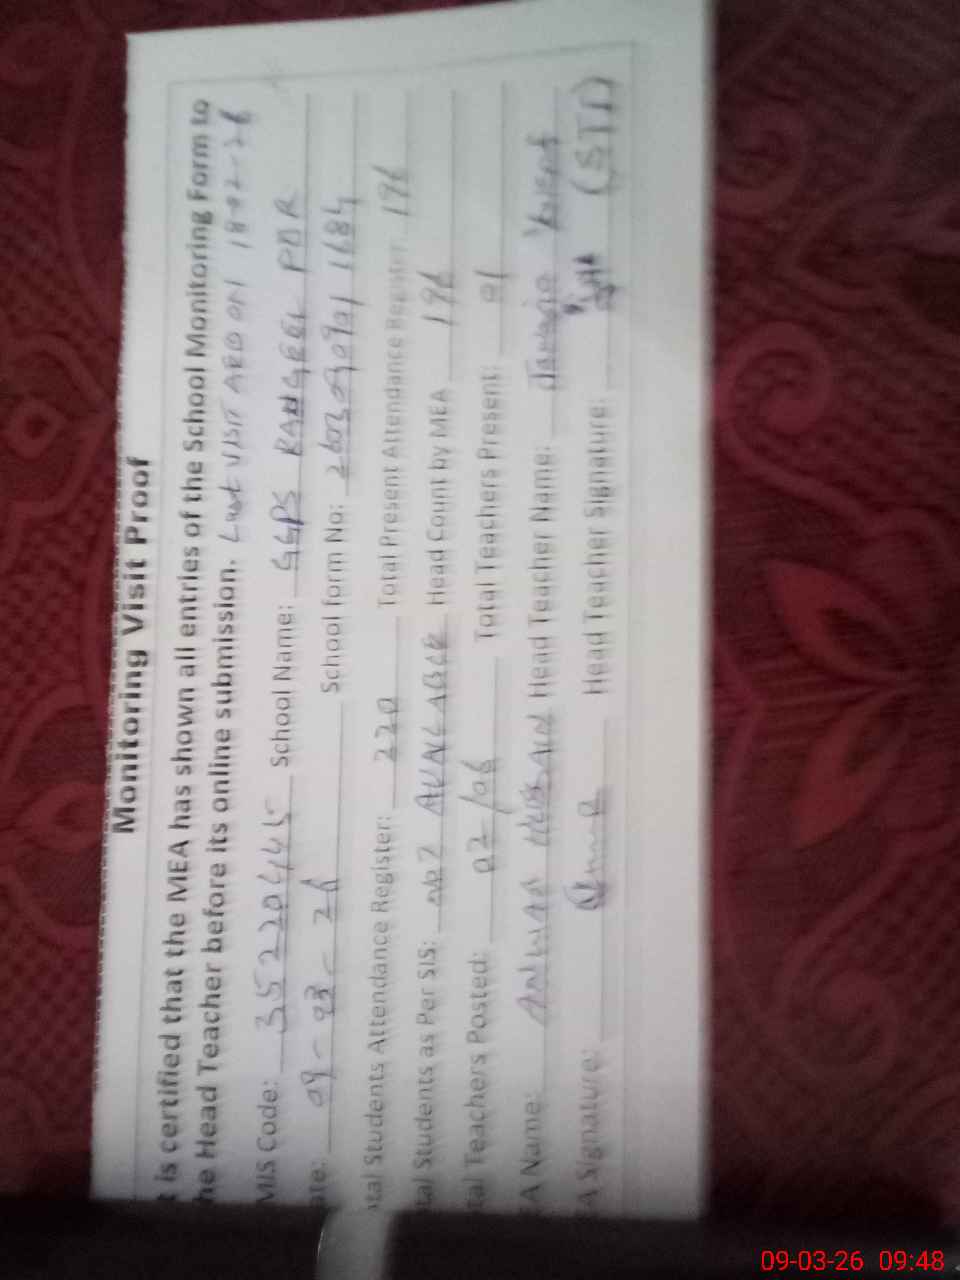 Monitoring Visit Proof
t is certified that the MEA has shown all entries of the School Monitoring Form to
he Head Teacher before its online submission. Last VISIT ARD ON 18-02-26
MIS Code: 35220445 School Name: GGPS RANGREZ PUR
ate: 09-03-26 School form No: 1684
tal Students Attendance Register: 220 Total Present Attendance Register: 196
tal Students as Per SIS: Head Count by MEA 196
tal Teachers Posted: 07/06 Total Teachers Present: 01
A Name: ANWAR HUSSAIN Head Teacher Name:
A Signature: Head Teacher Signature: (STI)
09-03-26 09:48